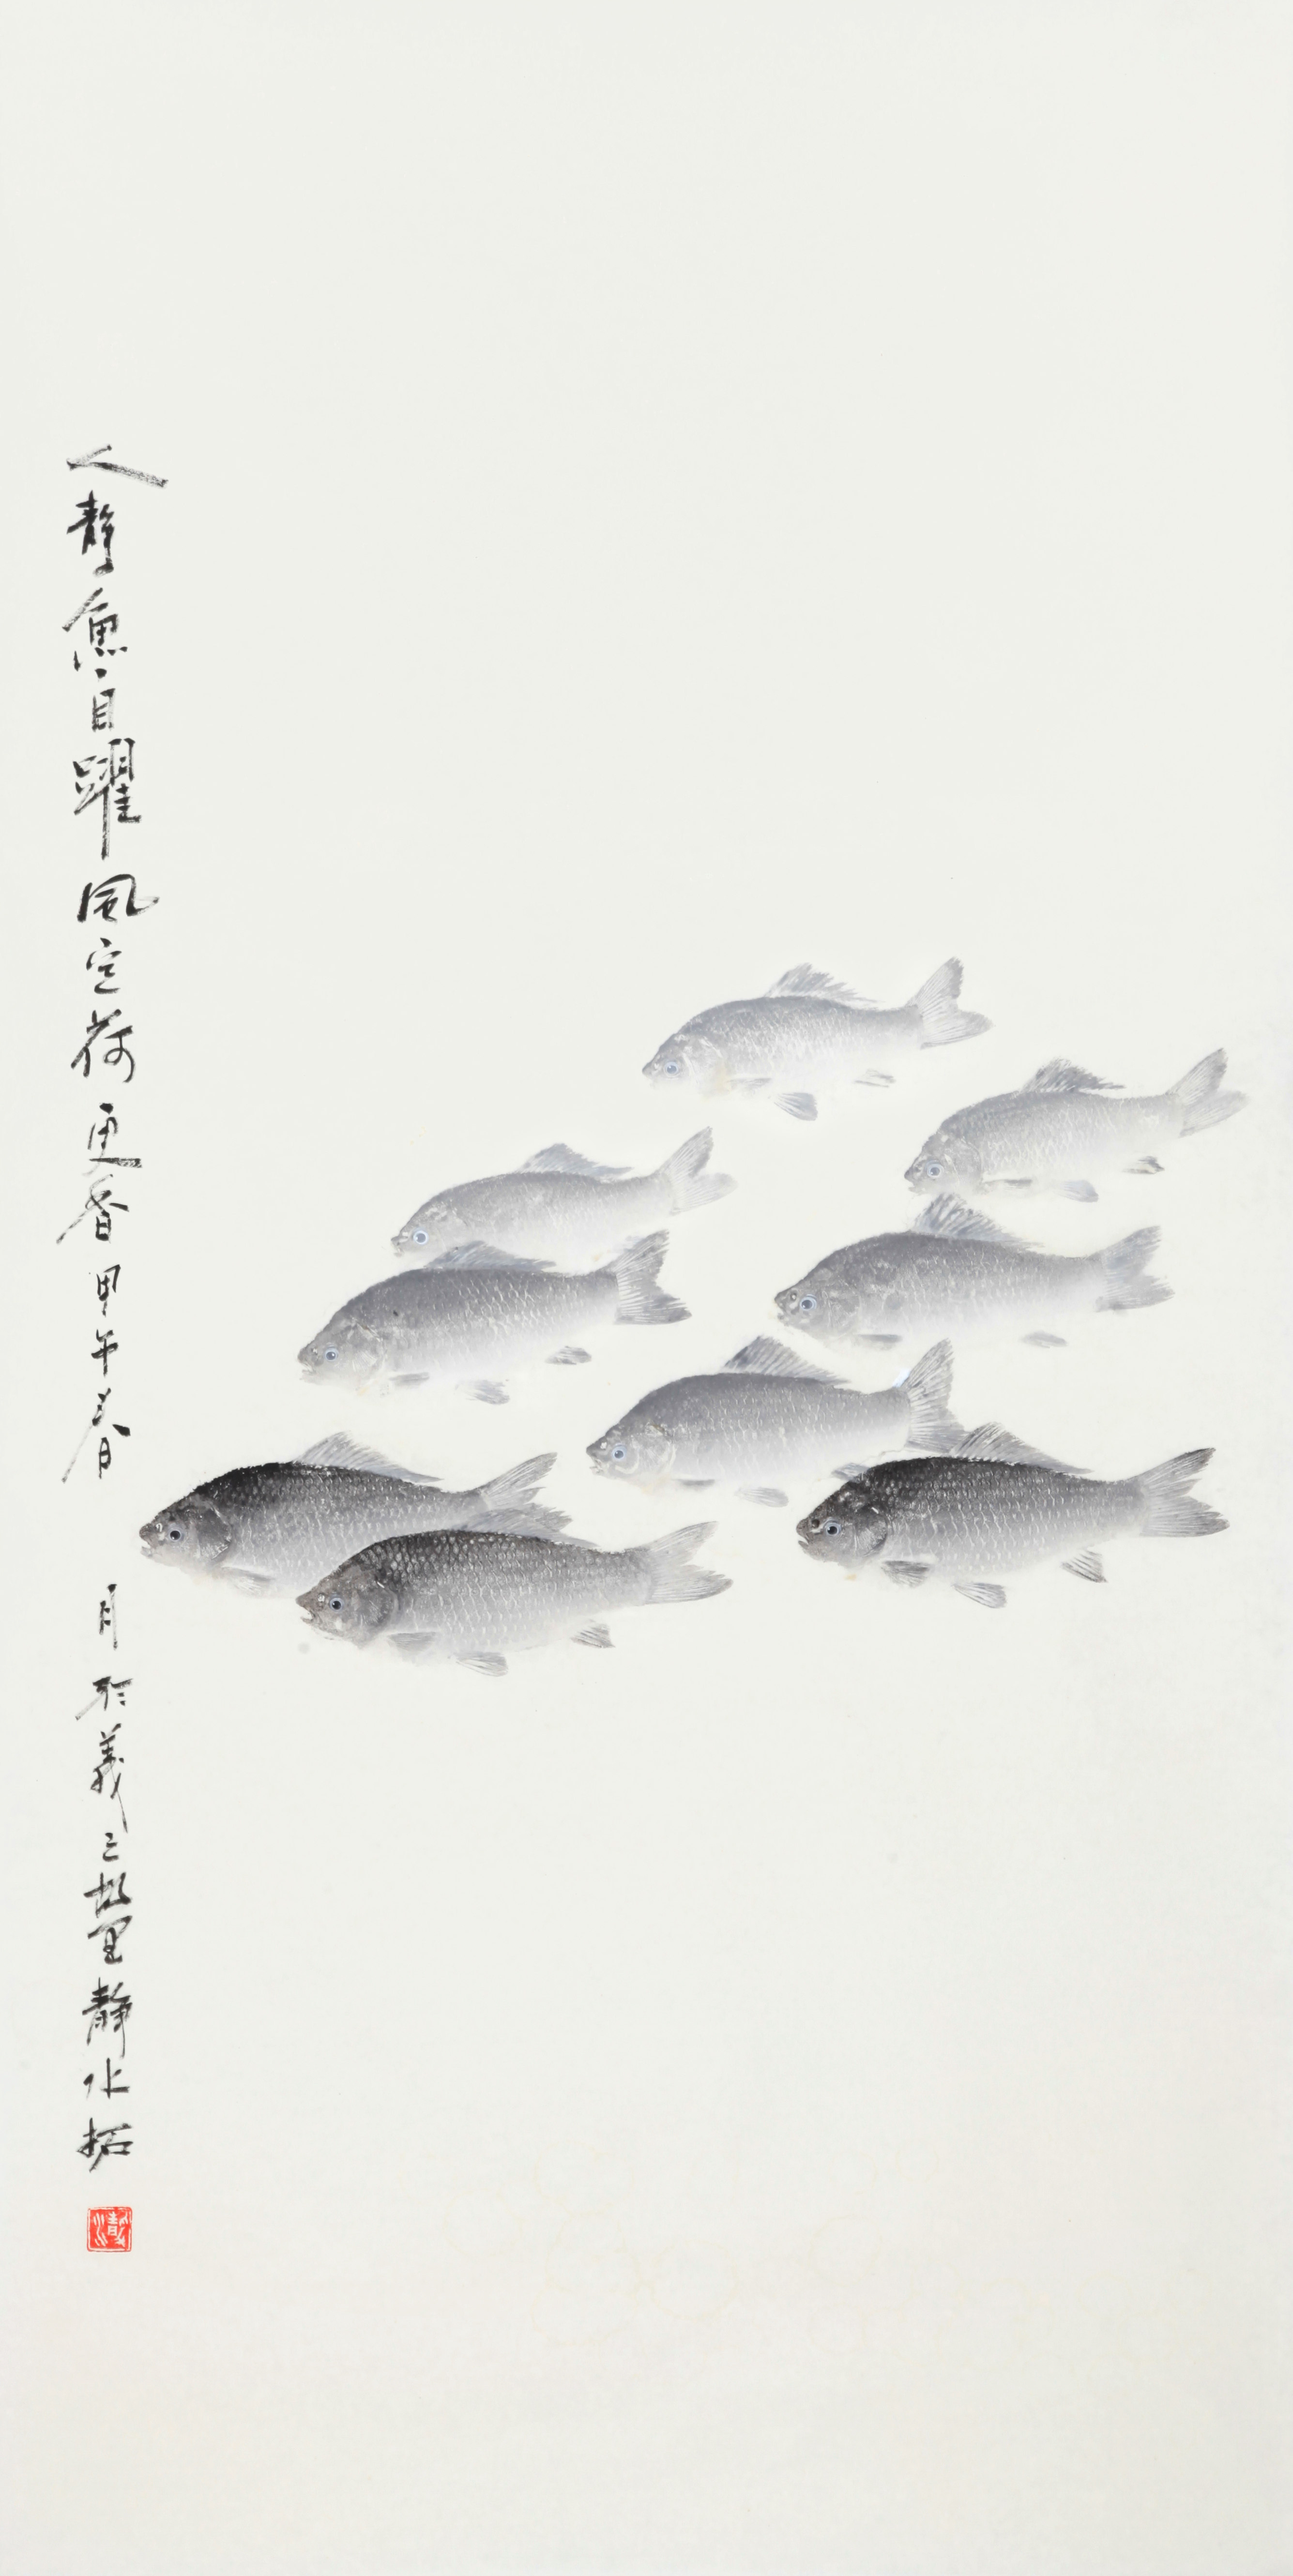 人静魚自躍風定荷更香甲午春月於義之故里静水拓